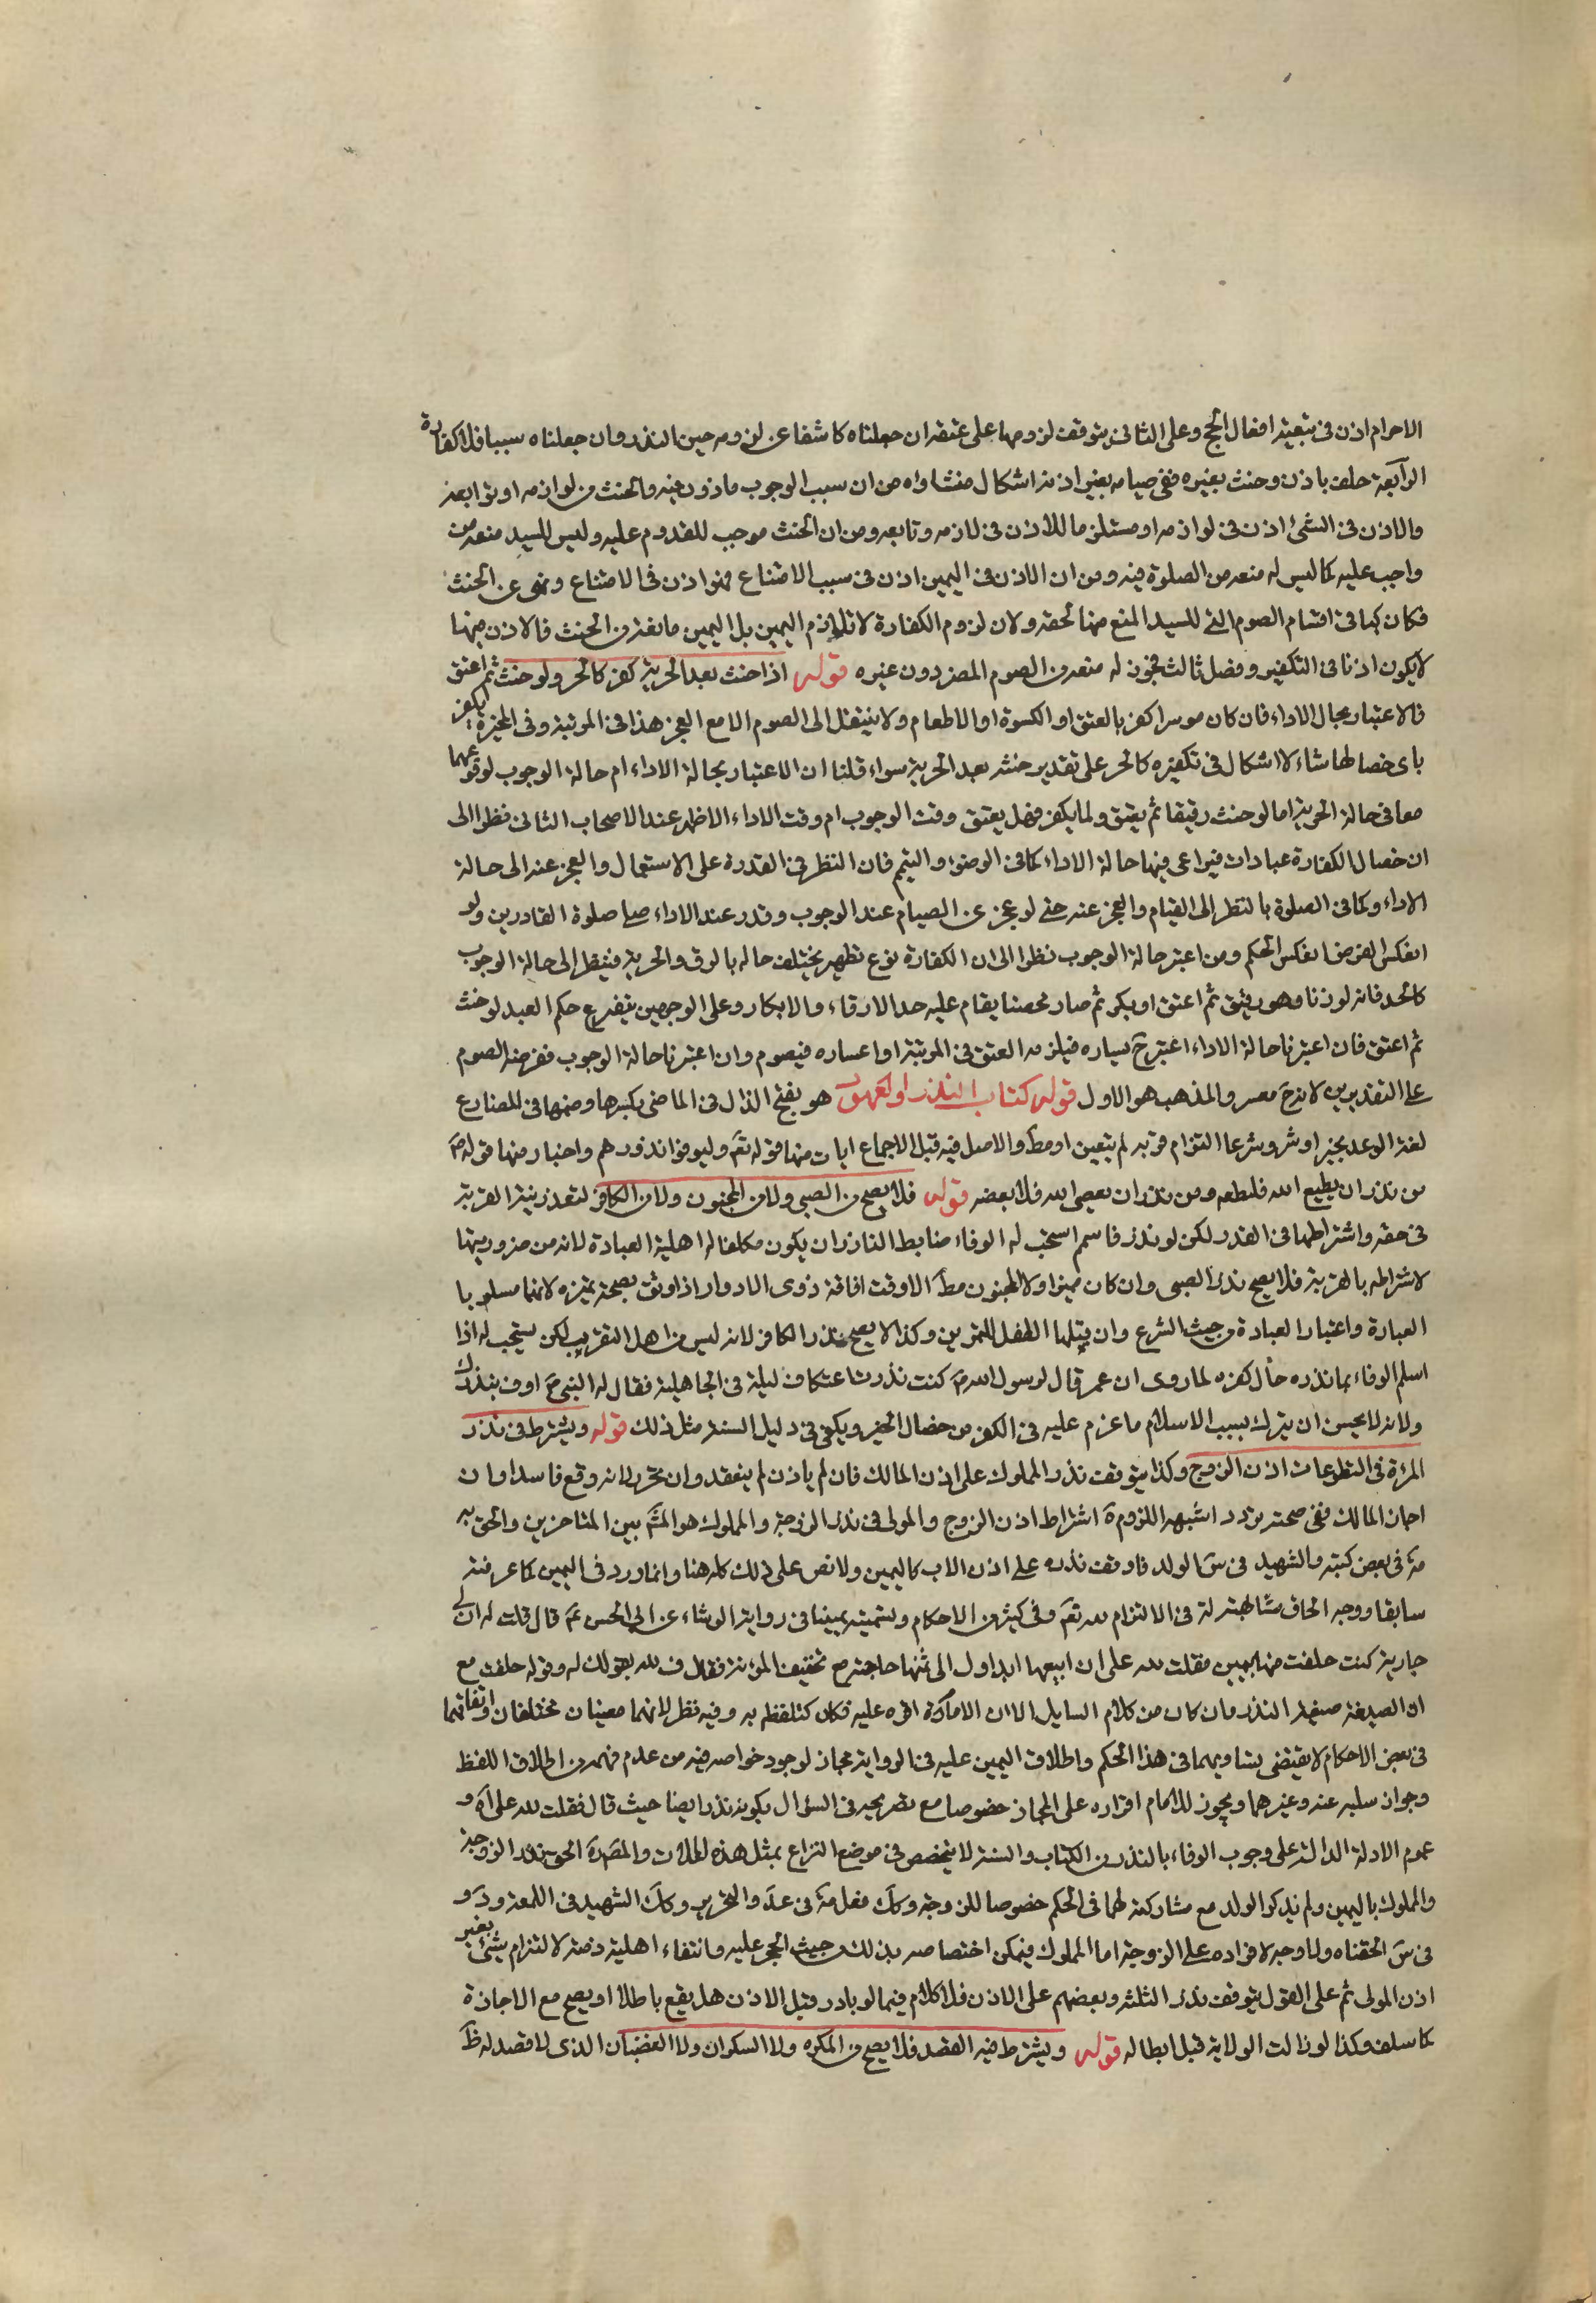 الاحرام اذن فى بقية افعال الحج وعلى الثانى يتوقف لزومها على عتقه ان جعلناه كاشفا عن لزومه حين النذر وان جعلناه سببا فلا كفارة
الرابعة حلف باذن وحنث بغيره ففى صيامه بغير اذنه اشكال منشاؤه من ان سبب الوجوب ماذون فيه والحنث من لوازمه او توابعه
والاذن فى الشئ اذن فى لوازمه او مستلزما للاذن فى لازمه وتابعه ومن ان الحنث موجب للقدوم عليه وليس للسيد منعه من
واجب عليه كما ليس له منعه من الصلوة فيه ومن ان الاذن فى اليمين اذن فى سبب الامتناع فهو اذن فى الامتناع ونهى عن الحنث
فكان كما فى اقسام الصوم التى للسيد المنع منها لحقه ولان لزوم الكفارة لا تلازم اليمين بل اليمين مانعة من الحنث فالاذن فيها
لا يكون اذنا فى التكفير وفصل ثالث فجوز له منعه من الصوم المضر دون غيره قوله اذا حنث بعد الحرية كفر كالحر ولو حنث ثم اعتق
فالاعتبار بحال الاداء فان كان موسرا كفر بالعتق او الكسوة او الاطعام ولا ينتقل الى الصوم الا مع العجز هذا فى المرتبة وفى المخيرة يكفر
باى خصالها شاء لا اشكال فى تكفيره كالحر على تقدير حنثه بعد الحرية سواء قلنا ان الاعتبار بحالة الاداء ام حالة الوجوب لوقوعهما
معا فى حالة الحرية اما لو حنث رقيقا ثم يعتق ولما يكفر فهل يعتق وقت الوجوب ام وقت الاداء الاظهر عند الاصحاب الثانى نظرا الى
ان خصال الكفارة عبادات فيراعى فيها حالة الاداء كما فى الوضوء والتيمم فان النظر فى القدرة على الاستعمال والعجز عنه الى حالة
الاداء وكما فى الصلوة بالنظر الى القيام والعجز عنه حتى لو عجز عن الصيام عند الوجوب وقدر عند الاداء صلى صلوة القادرين ولو
انعكس الفرض انعكس الحكم ومن اعتبر حالة الوجوب نظرا الى ان الكفارة نوع تطهير يختلف حاله بالرق والحرية فينظر الى حالة الوجوب
كالحد فانه لو زنا وهو رقيق ثم اعتق او بكر ثم صار محصنا يقام عليه حد الارقاء والابكار وعلى الوجهين يتفرع حكم العبد لو حنث
ثم اعتق فان اعتبرنا حالة الاداء اعتبر ح يساره فيلزمه العتق فى المرتبة او اعساره فيصوم وان اعتبرنا حالة الوجوب ففرضه الصوم
على التقديرين لانه ح معسر والمذهب هو الاول قوله كتاب النذر والعهود هو بفتح الذال فى الماضى بكسرها وضمها فى المضارع
لغة الوعد بخير او شر وشرعا التزام قربة لم يتعين او مط والاصل فيه قبل الاجماع ايات منها قوله تع وليوفوا نذورهم واخبار منها قوله ص
من نذر ان يطيع الله فليطعه ومن نذر ان يعصى الله فلا يعصه قوله فلا يصح من الصبى ولا من المجنون ولا من الكافر لتعذر نية القربة
فى حقه واشتراطها فى النذر لكن لو نذر فاسلم استحب له الوفاء ضابط الناذر ان يكون مكلفا له اهلية العبادة لانه من ضروريتها
لاشتراطه بالقربة فلا يصح نذر الصبى وان كان مميزا ولا المجنون مط الا وقت افاقة ذوى الادوار اذا وثق بصحة تميزه لانهما مسلوبا
العبارة واعتبار العبادة من حيث الشرع وان قبلها الطفل للتمرين وكذا لا يصح نذر الكافر لانه ليس من اهل التقريب لكن يستحب له اذا
اسلم الوفاء بما نذره حال كفره لما روى ان عمر قال لرسول الله ص كنت نذرت اعتكاف ليلة فى الجاهلية فقال له النبى ص اوف بنذرك
ولانه لا يحسن ان يترك بسبب الاسلام ما عزم عليه فى الكفر من خصال الخير ويكفى فى دليل السنة مثل ذلك قوله ويشترط فى نذر
المرئة فى التطوعات اذن الزوج وكذا يتوقف نذر المملوك على اذن المالك فان لم ياذن لم ينعقد وان تحرر لانه وقع فاسدا وان
اجاز المالك ففى صحته تردد اشبهه اللزوم ة اشتراط اذن الزوج والمولى فى نذر الزوجة والمملوك هو المش بين المتاخرين والحق به
مة فى بعض كتبه والشهيد فى س الولد فاوقف نذره على اذن الاب كاليمين ولا نص على ذلك كله هنا وانما ورد فى اليمين كما عرفته
سابقا ووجه الحاق مشابهته له فى الالتزام لله تع وفى كثير من الاحكام وتسميته يمينا فى رواية الوشاء عن ابى الحسن ع قال قلت له ان لى
جارية كنت حلفت منها بيمين فقلت لله على ان ابيعها ابدا ولى الى ثمنها حاجة مع تخفيف المؤنة فقال ف لله بقولك له وقوله حلفت مع
ان الصيغة صيغة النذر وان كان من كلام السايل الا ان الامام ع اقره عليه فكان كتلفظه به وفيه نظر لانهما معينان مختلفان واتفاقهما
فى بعض الاحكام لا يقتضى تساويهما فى هذا الحكم واطلاق اليمين عليه فى الرواية مجاز لوجود خواصه فيه من عدم فهمه من اطلاق اللفظ
وجواز سلبه عنه وغيرهما ويجوز للامام اقراره على المجاز خصوصا مع تصريحه فى السؤال بكونه نذرا ايضا حيث قال فقلت لله على آه و
عموم الادلة الدالة على وجوب الوفاء بالنذر من الكتاب والسنة لا يتخصص فى موضع النزاع بمثل هذه والمص ره الحق نذر الزوجة
والمملوك باليمين ولم يذكر الولد مع مشاركته لهما فى الحكم خصوصا للزوجة وكك فعل مة فى عد والتحرير وكك الشهيد فى اللمعة ود و
فى س الحقناه ولا وجه لافراده على الزوجة اما المملوك فيمكن اختصاصه بذلك من حيث الحجر عليه وانتفاء اهلية ذمته لالتزام بشئ بغير
اذن المولى ثم على القول بتوقف نذر الثلثة وبعضهم على الاذن فلا كلام فيما لو بادر قبل الاذن هل يقع باطلا او يصح مع الاجازة
كما سلف وكذا لو زالت الولاية قبل ابطاله قوله ويشترط فيه القصد فلا يصح من المكره ولا السكران ولا الغضبان الذى لا قصد له ظ